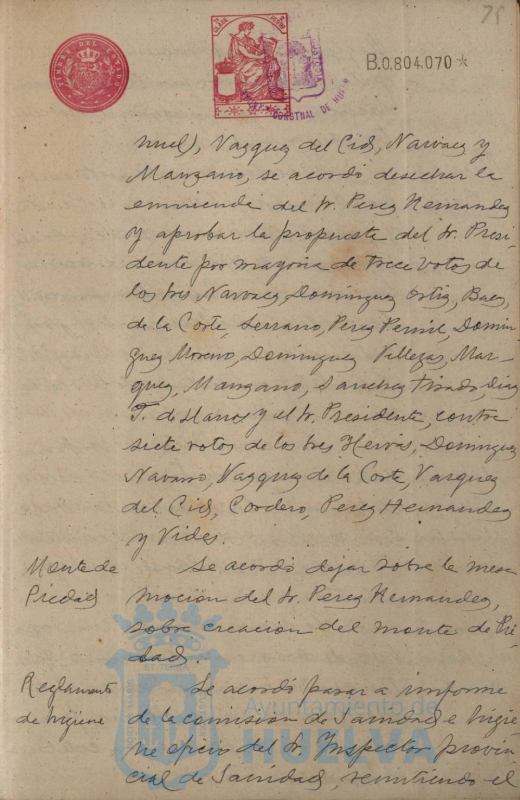 75
TIMBRE DEL ESTADO
B.0.804.070*
nuel), Vazquez del Cid, Narvaez y
Manzano, se acordó desechar la
enmienda del Sr. Perez Hernandez
y aprobar la propuesta del Sr. Presi-
dente por mayoria de trece votos de
los Sres Narvaez, Dominguez Ortiz, Baez,
de la Corte, Serrano, Perez Pernil, Domin
guez Moreno, Dominguez Villegas, Mar-
quez, Manzano, Sanchez Tirado, Diaz
F. de Llanos y el Sr. Presidente, contra
siete votos de los Sres Hervás, Dominguez
Navarro, Vazquez de la Corte, Vazquez
del Cid, Cordero, Perez Hernandez
y Vides.
Monte de Piedad
Se acordó dejar sobre la mesa
moción del Sr. Perez Hernandez,
sobre creación del monte de Pie
dad.
Reglamento de higiene
Se acordó pasar a informe
de la comisión de Sanidad e higie
ne oficio del Sr. Inspector provin
cial de Sanidad, remitiendo el
Ayuntamiento de
HUELVA